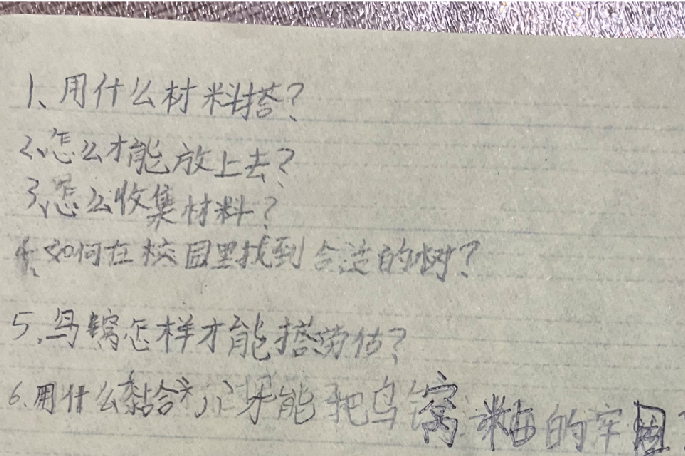 1、用什么材料搭?
2、怎么才能放上去?
3、怎么收集材料?
4、如何在校园里找到合适的树?
5.鸟窝怎样才能搭劳估?
6.用什么黏合才能把鸟窝粘的牢固?